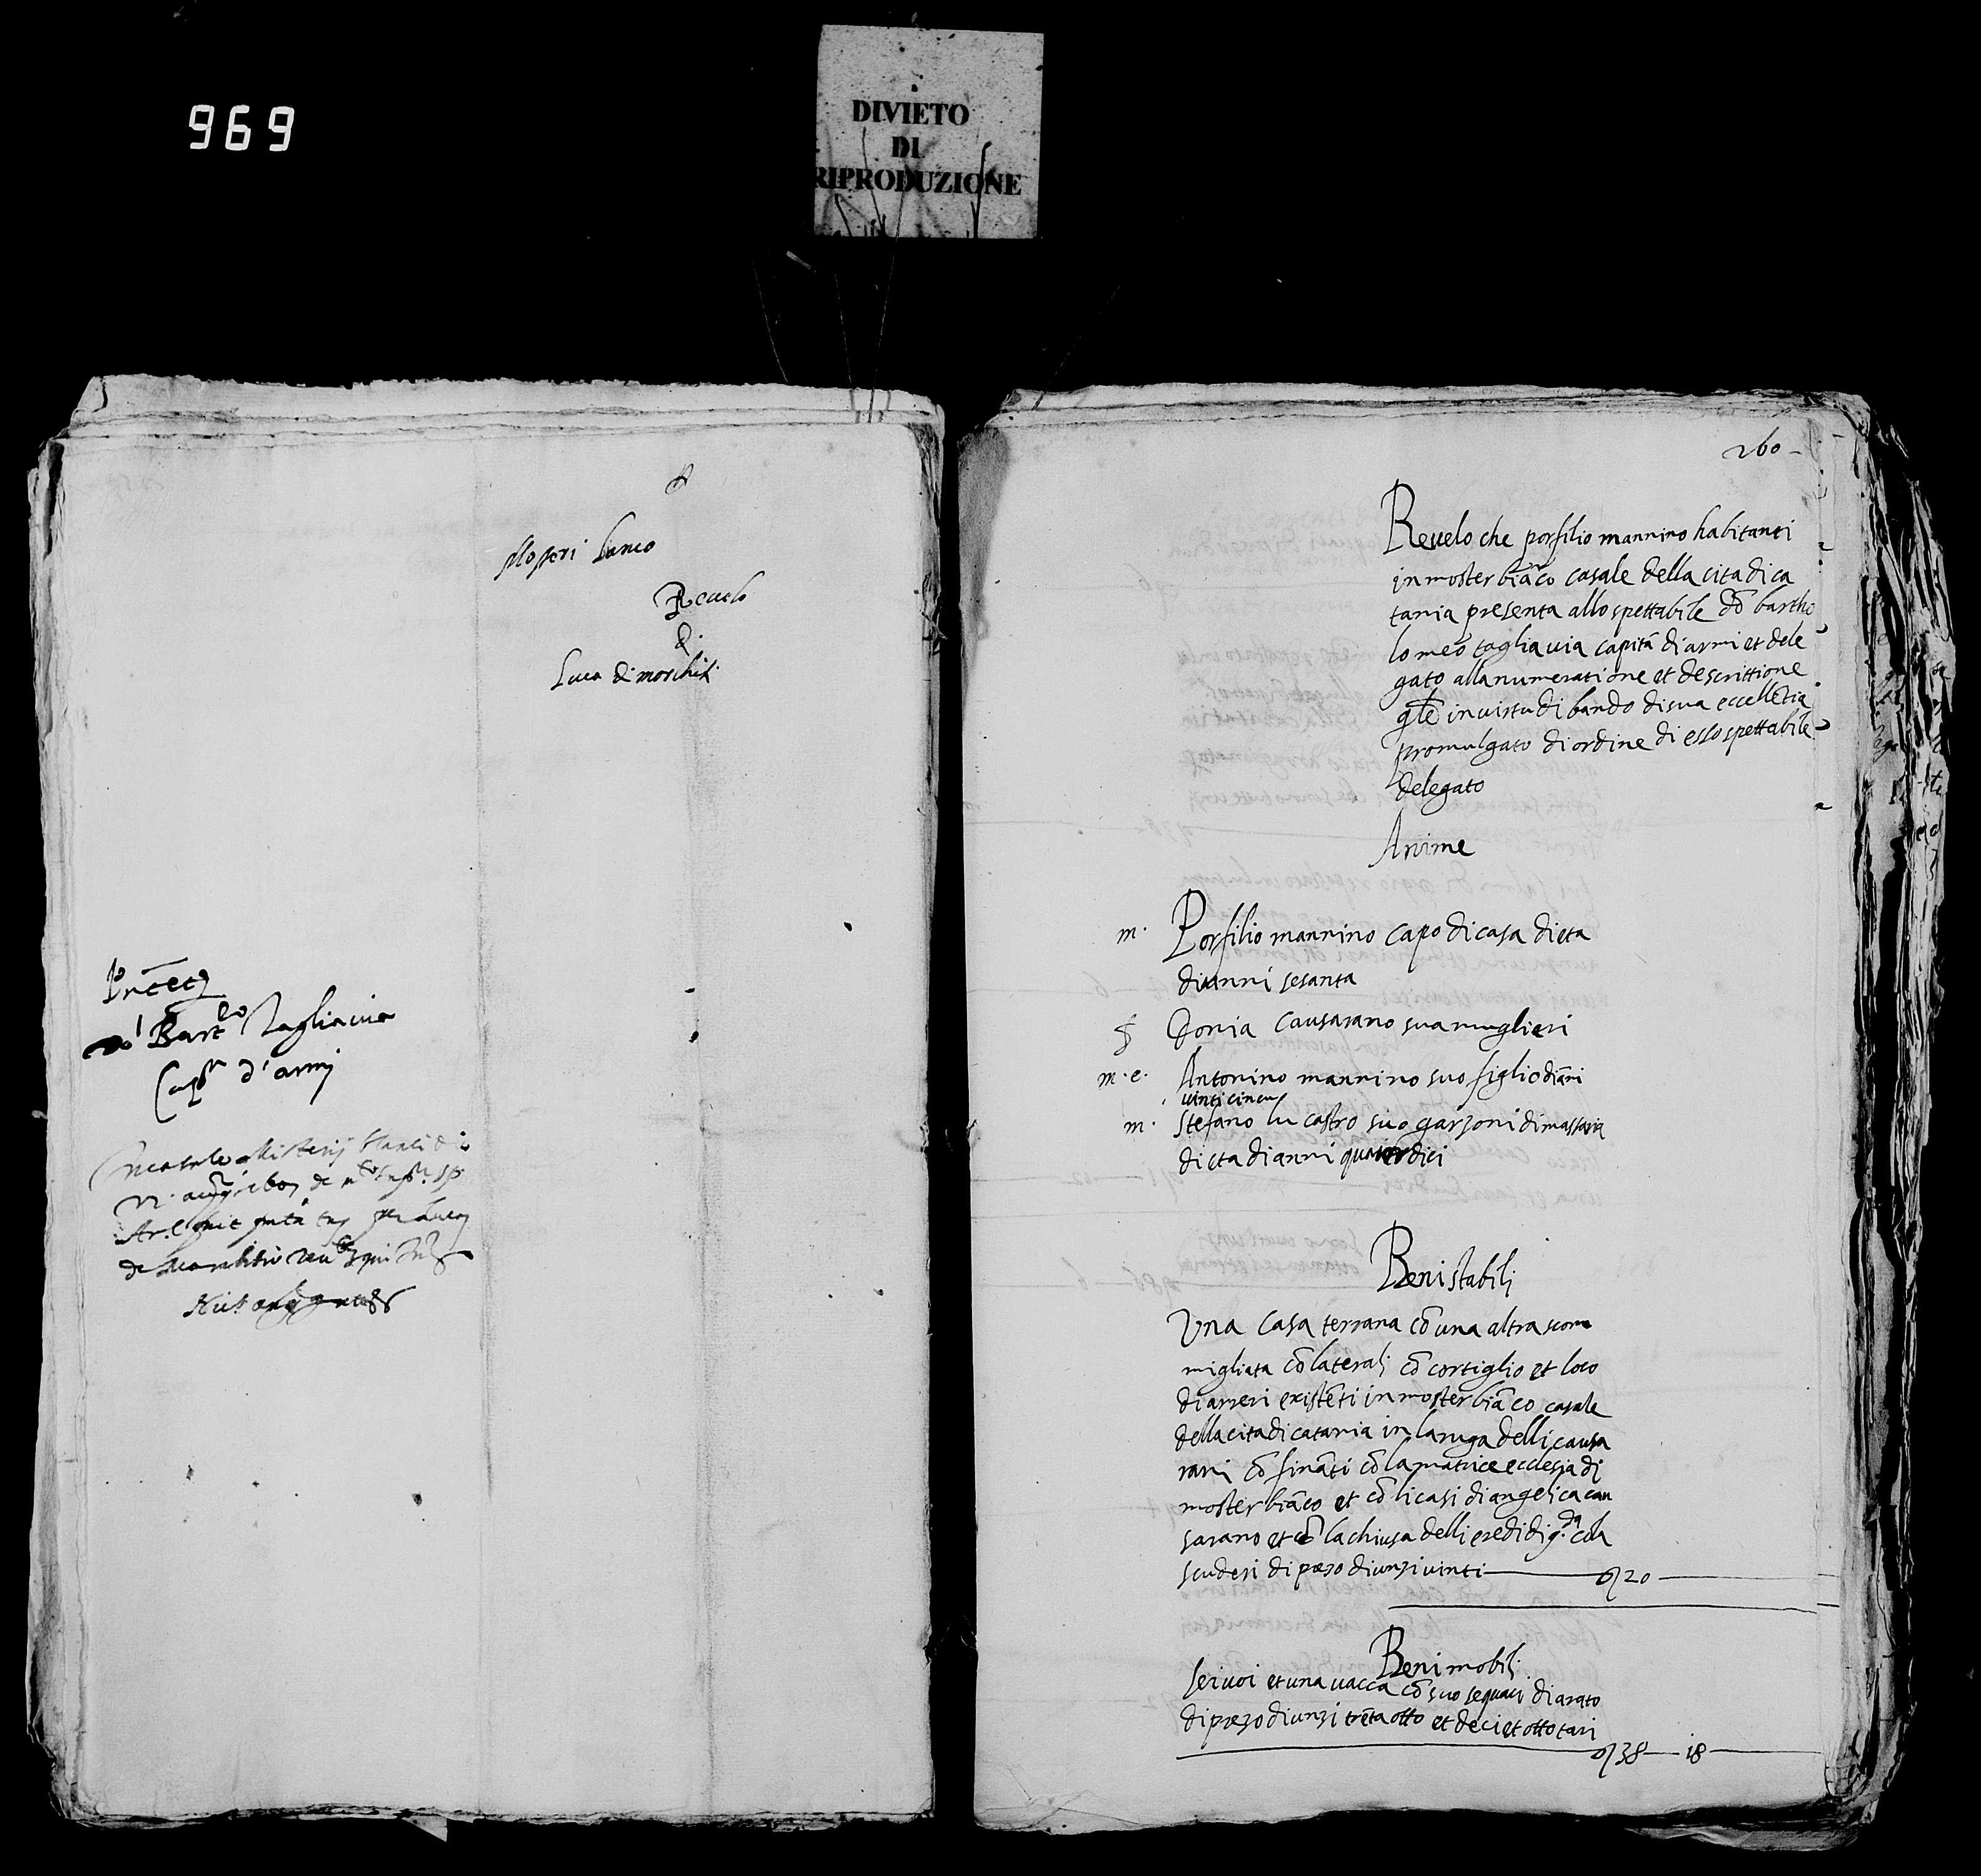 969
DIVIETO
DI
RIPRODUZIONE
Mosteri banco
Revelo
di
Luca di moschiti
do' Bart.lo Tagliavia
Cap.n d'armj
260
Revelo che porfilio mannino habitanti
in moster biāco casale della cita di ca
tania presenta allo spettabile dō bartho
lomeo tagliavia capitā di armi et dele
gato alla numeratione et descrittione
gāle in virtu di bando di sua eccellētia
promulgato di ordine di esso spettabile
delegato
Anime
m. Porfilio mannino capo di casa di eta
di anni sesanta
f Donia causarano sua muglieri
m. e. Antonino mannino suo figlio di āni
vinti cincu
m. Stefano lu castro suo garzoni di massaria
di eta di anni quatordici
Beni stabili
Una casa terrana cō una altra scom
migliata cō laterali cō cortiglio et loco
di arreri existēti in moster biāco casale
della cita di catania in la ruga delli causa
rani cō fināti cō la matrice ecclesia di
moster biāco et cō li casi di angelica cau
sarano et cō la chiusa delli eredi di q.dā cola
scuderi di prezo di unzi vinti 20
Beni mobili
sei voi et una vacca cō suo sequaci di arato
di prezo di unzi trēta otto et deci et otto tari
38 — 18